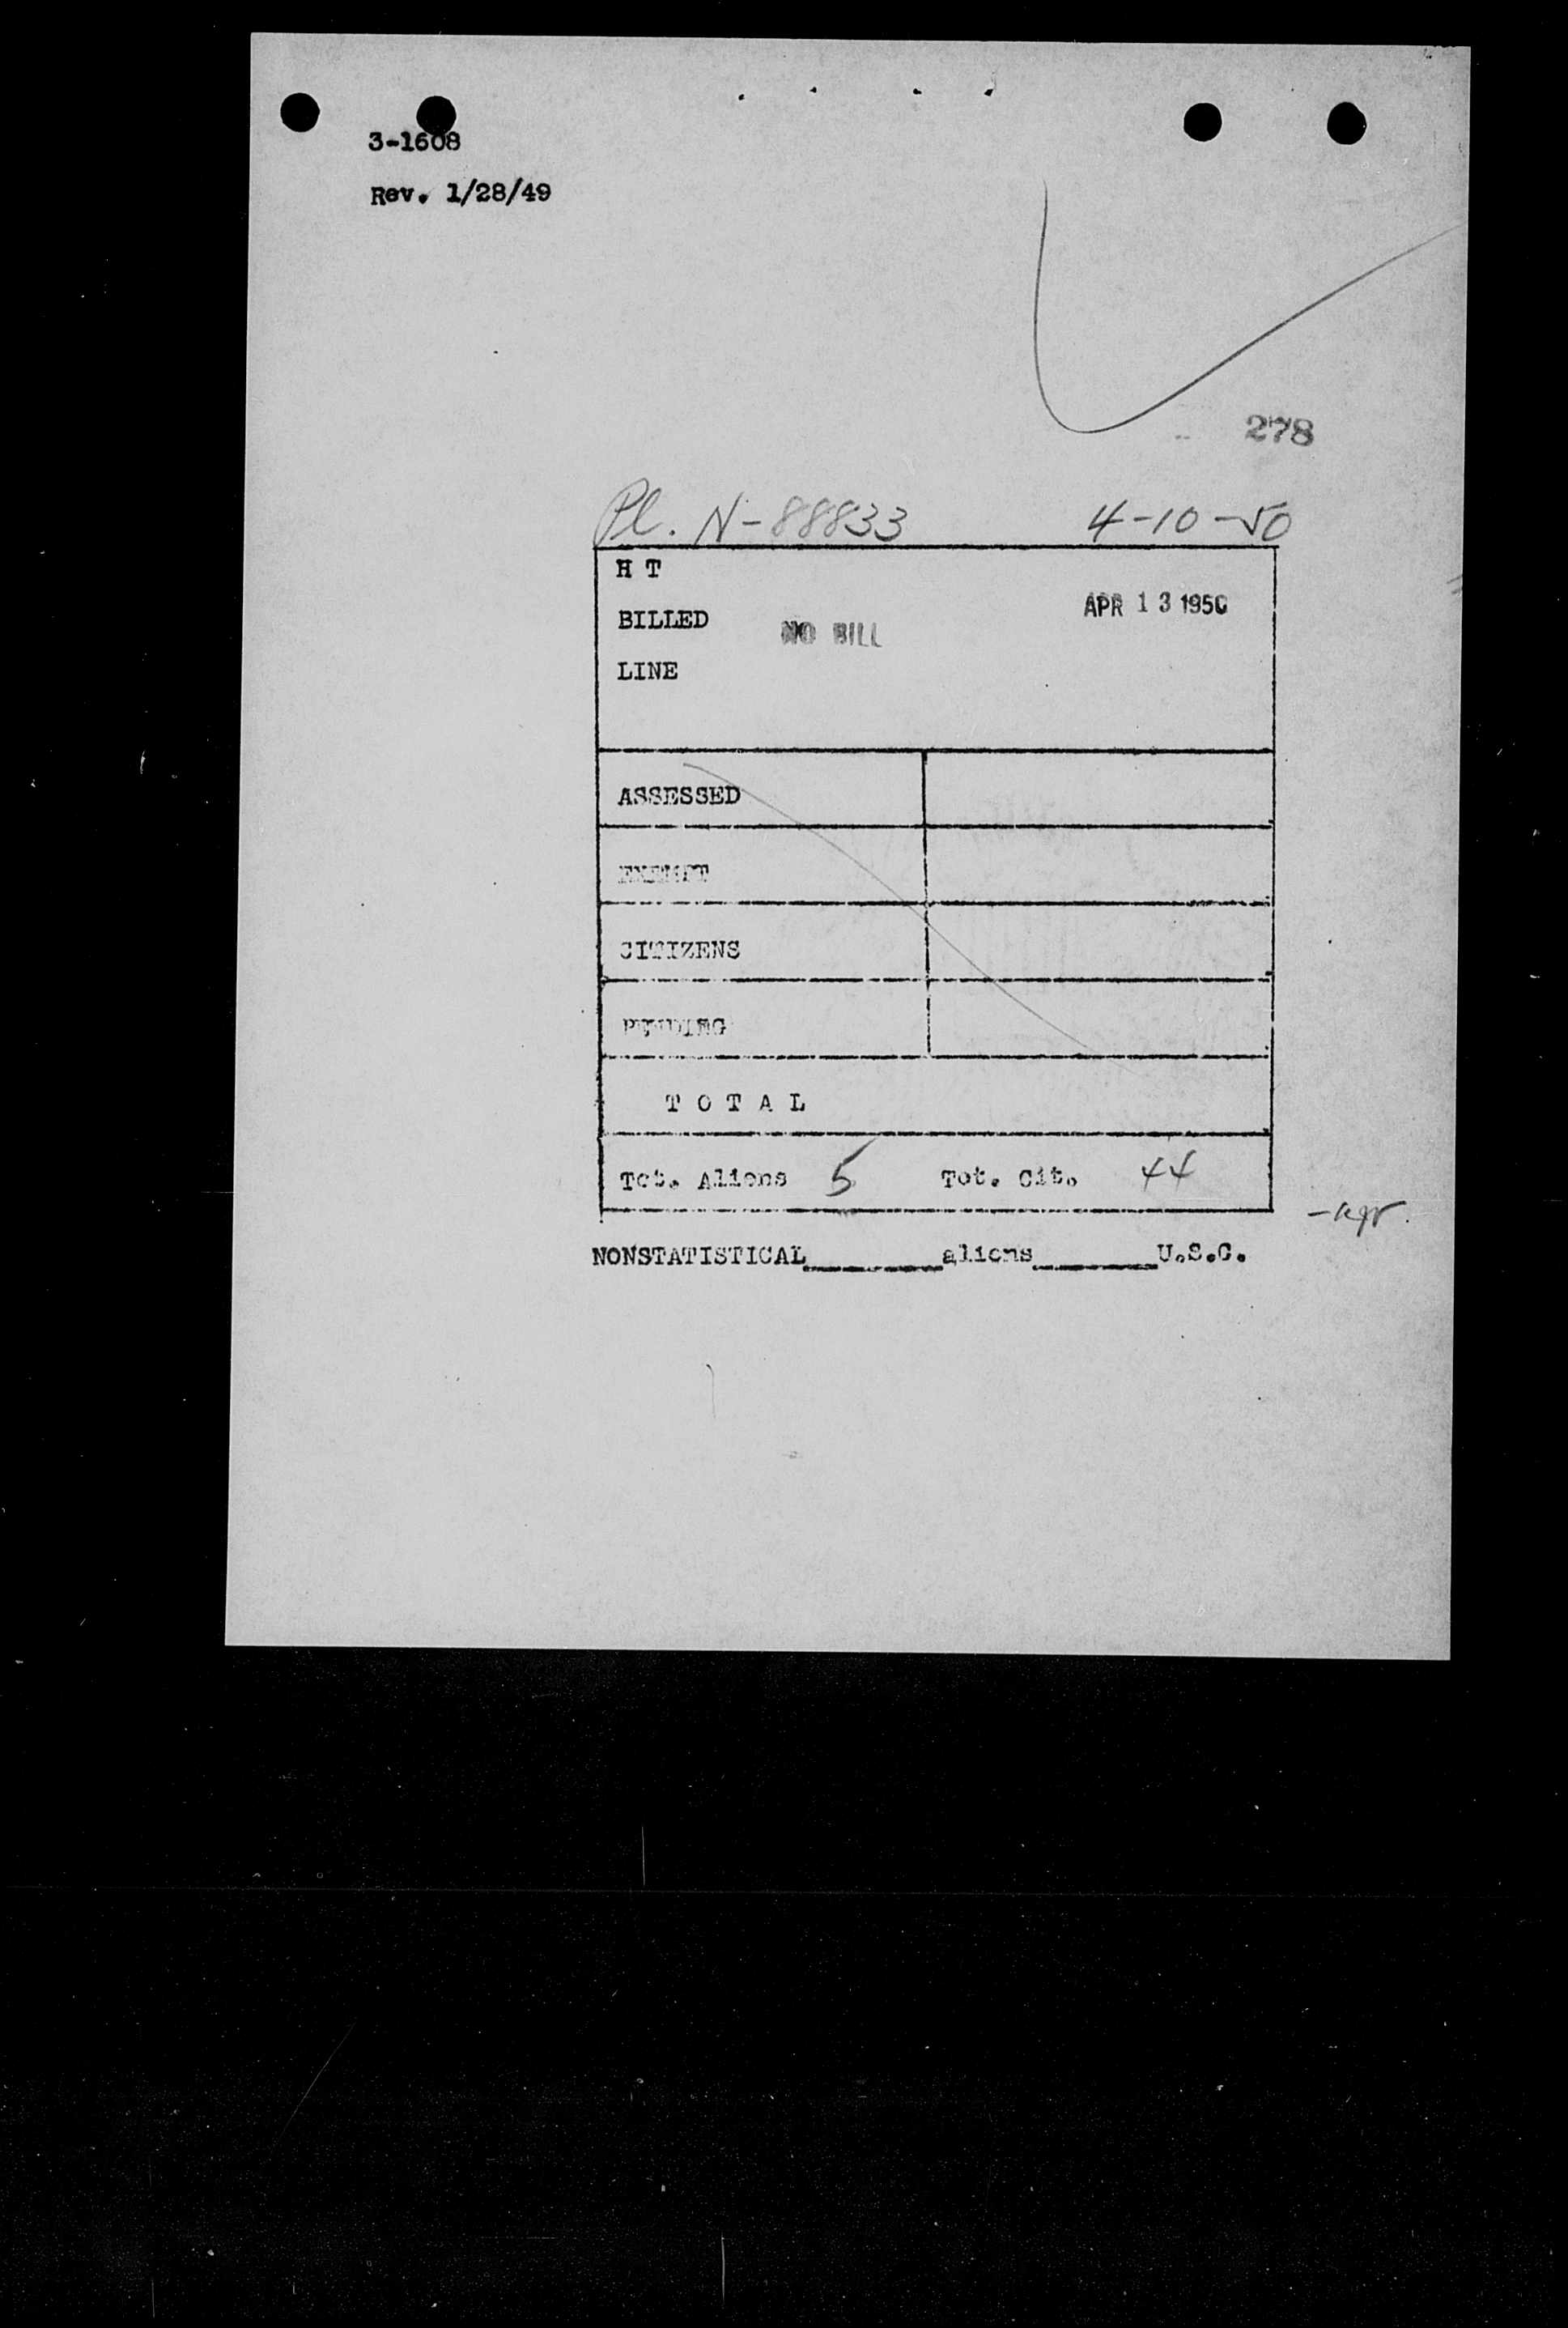 3-1608
Rev. 1/28/49
278
Pl. N-88833 4-10-50
H T
APR 13 1950
BILLED NO BILL
LINE
ASSESSED
EXEMPT
CITIZENS
PENDING
T O T A L
Tot. Aliens 5 Tot. Cit. 44
NONSTATISTICAL________aliens________U.S.C.